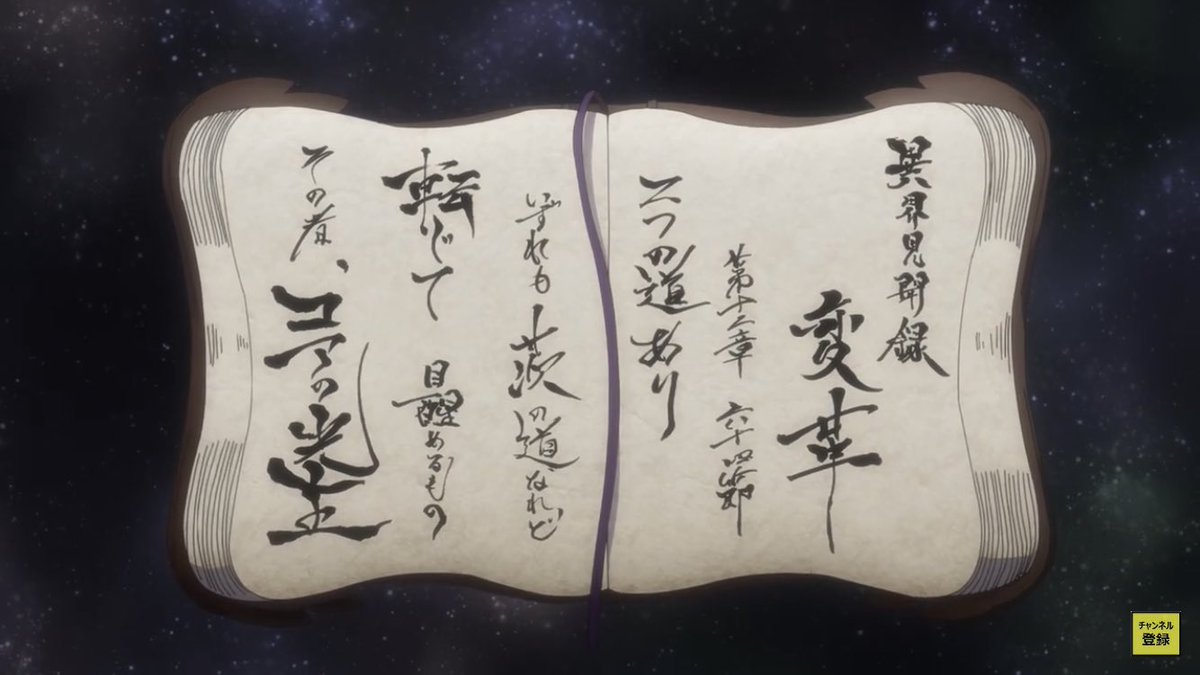 異界見聞録
変革
第十二章 六十四節
二つの道あり
いずれも茨の道なれど
転じて 目醒めるもの
その者、コマの
チャンネル
登録